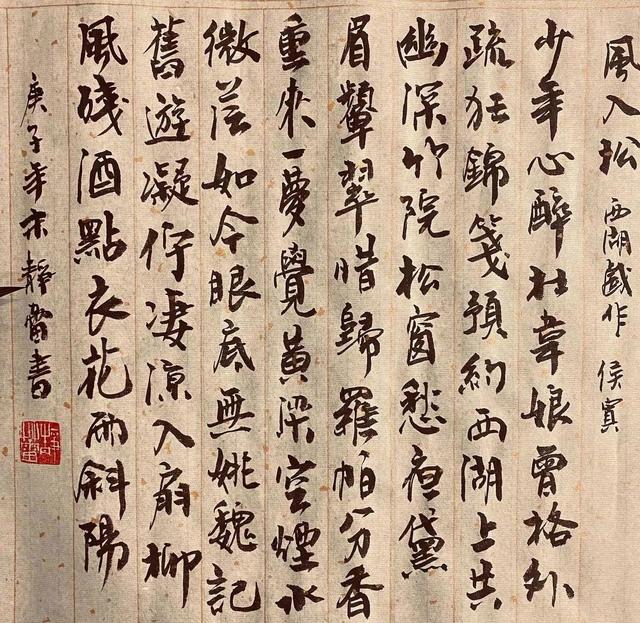 風入松 西湖戲作 侯寘
少年心醉杜韋娘曾格外
疏狂錦箋預約西湖上共
幽深竹院松窗愁夜黛
眉顰翠惜歸羅帕分香
重來一夢覺黃粱空煙水
微茫如今眼底無姚魏記
舊遊凝佇凄涼入扇柳
風殘酒點衣花雨斜陽
庚子年末靜雷書